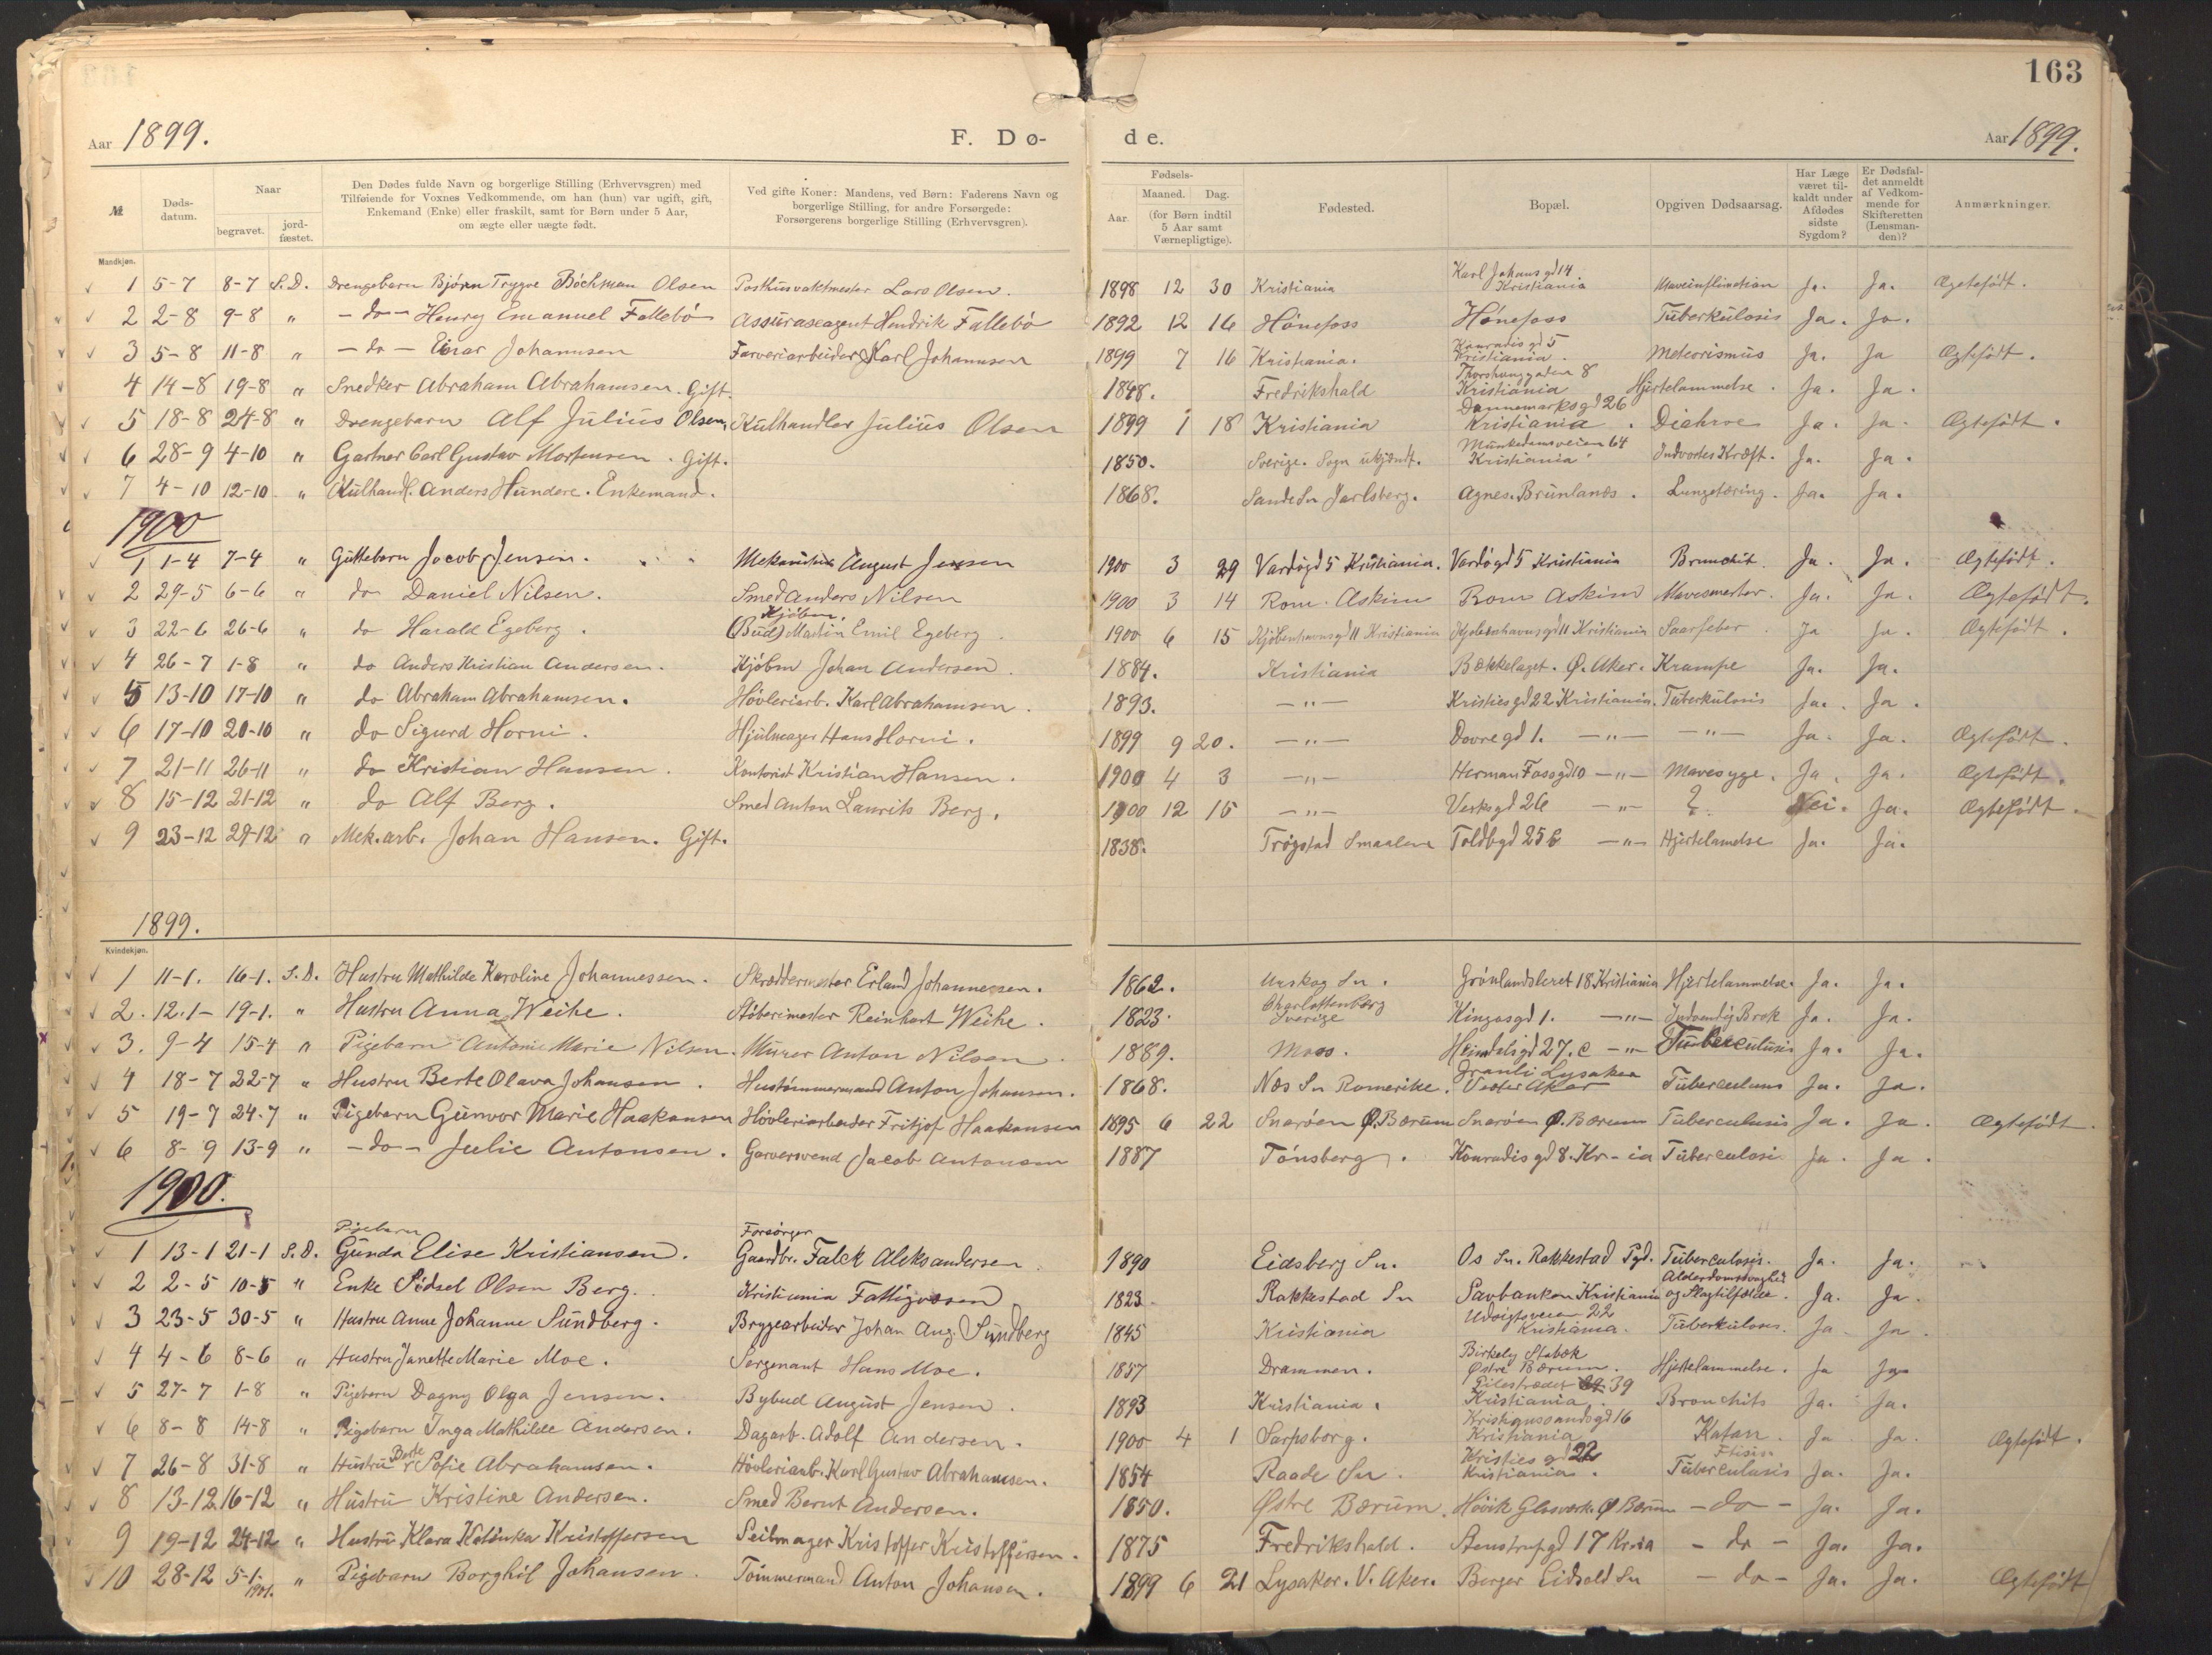 163
Aar 1899. F. Dø- de. Aar 1899.
№ Døds-datum. Naar begravet. jord-fæstet. Den Dødes fulde Navn og borgerlige Stilling (Erhvervsgren) med Tilføiende for Voxnes Vedkommende, om han (hun) var ugift, gift, Enkemand (Enke) eller fraskilt, samt for Børn under 5 Aar, om ægte eller uægte født. Ved gifte Koner: Mandens, ved Børn: Faderens Navn og borgerlige Stilling, for andre Forsørgede: Forsørgerens borgerlige Stilling (Erhvervsgren). Fødsels- Aar. Maaned. Dag. (for Børn indtil 5 Aar samt Værnepligtige). Fødested. Bopæl. Opgiven Dødsaarsag. Har Læge været til-kaldt under Afdødes sidste Sygdom? Er Dødsfal-det anmeldt af Vedkom-mende for Skifteretten (Lensman-den)? Anmærkninger.
Mandkjøn.
1 5-7 8-7 S.D. Drengebarn Bjørn Trygve Böchman Olsen Posthusvaktmester Lars Olsen. 1898 12 30 Kristiania Karl Johans gd 14 Kristiania Ja. Ja. Ægtefødt.
2 2-8 9-8 " -do- Henry Emanuel Fallebö Assuraseagent Hendrik Fallebö 1892 12 16 Hönefoss Hönefoss Tüberkülosis Ja. Ja.
3 5-8 11-8 " -do- Einar Johannsen Farveriarbeider Karl Johannsen 1899 7 16 Kristiania. Konradis gd 5 Kristiania. Meteorismüs Ja. Ja Ægtefødt.
4 14-8 19-8 " Snedker Abraham Abrahamsen. Gift. 1848. Fredrikshald Thorshauggaden 8 Kristiania Hjertelammelse. Ja. Ja.
5 18-8 24-8 " Drengebarn Alf Jülius Olsen. Külhandler Jülius Olsen 1899 1 18 Kristiania Dannemarksgd 26 Kristiania. Diahroe Ja. Ja. Ægtefødt.
6 28-9 4-10 " Gartner Carl Gustav Mortensen. Gift. 1850. Sverige. Sogn ukjendt. Münkedamsveien 64 Kristiania. Indvortes Kræft. Ja. Ja.
7 4-10 12-10 " Külhandl. Anders Hündere. Enkemand. 1868. Sande Sn Jarlsberg. Agnes. Brünlanæs. Lungetæring. Ja. Ja.
1900
1 1-4 7-4 " Güttebarn Jacob Jensen. Mekanikus August Jensen 1900 3 29 Vardögd 5 Kristiania. Vardögd 5 Kristiania Brunchit. Ja. Ja. Ægtefødt.
2 29-5 6-6 " do Daniel Nilsen. Smed Anders Nilsen 1900 3 14 Rom. Askim Rom Askim Mavesmerter. Ja. Ja. Ægtefødt.
3 22-6 26-6 " do Harald Egeberg. Kjöbm. (Büd) Martin Emil Egeberg. 1900 6 15 Kjöbenhavnsgd 11 Kristiania Kjöbenhavnsgd 11 Kristiania Saarfeber. Ja Ja. Ægtefødt.
4 26-7 1-8 " do Anders Kristian Andersen. Kjöbm Johan Andersen. 1884. Kristiania Bækkelaget. Ø. Aker. Krampe Ja. Ja.
5 13-10 17-10 " do Abraham Abrahamsen. Hövleriarb. Karl Abrahamsen. 1893. -"- Kristies gd 22 Kristiania. Tüberkülosis Ja. Ja.
6 17-10 20-10 " do Sigurd Horni. Hjulmager Hans Horni. 1899 9 20. -"- Dovregd 1. -"- -"- Ja. Ja. Ægtefødt.
7 21-11 26-11 " do Kristian Hansen. Kontorist Kristian Hansen. 1900 4 3 -"- Herman Fossgd 10 -"- Mavesyge. Ja. Ja. Ægtefødt.
8 15-12 21-12 " do Alf Berg. Smed Anton Laurits Berg. 1900 12 15 -"- Verksgd 26 -"- ?. Nei. Ja. Ægtefødt.
9 23-12 29-12 " Mek.arb. Johan Hansen. Gift. 1838. Trøgstad Smaalene Toldbgd 25 b -"- Hjertelamelse Ja. Ja.
1899.
Kvindekjøn.
1 11-1. 16-1. S.D. Hustru Mathilde Karoline Johannessen. Skræddermester Erland Johannessen. 1862. Urskog Sn. Grönlandsleret 18. Kristiania Hjertelammelse. Ja. Ja.
2. 12.1- 19-1. " Hustru Anna Weihe. Støberimester Reinhart Weihe. 1823. Charlottenberg Sverige Kingosgd 1. -"- Indvendig Brok Ja. Ja.
3. 9-4 15-4 " Pigebarn Antonie Marie Nilsen. Murer Anton Nilsen. 1889. Moss. Heimdalsgd 27. c -"- Tüberculusis Ja. Ja.
4 18-7 22-7 " Hustru Berte Olava Johansen. Hustömmermand Anton Johansen. 1868. Næs Sn Romerike. Granli Lysaker Vestre Aker Tüberculans Ja. Ja.
5 19-7 24.7 " Pigebarn Günvor Marie Haakansen Hövleriarbeider Fritjof Haakansen 1895 6 22 Snarøen Ø. Bærüm Snarøen Ø. Bærum Tüberculusis Ja. Ja. Ægtefødt.
6 8-9 13-9 " -do- Julie Antonsen. Garversvend Jacob Antonsen 1887 Tönsberg. Konradis gd 8. Kr-ia Tüberculosi Ja. Ja.
1900.
1 13-1 21-1 S.D. Pigebarn Günda Elise Kristiansen. Forsörger Gaardbr. Falck Aleksandersen. 1890 Eidsberg Sn. Os Sn. Rakkestad Pgd. Tüberculosis. Ja. Ja.
2 2-5 10-5 " Enke Sidsel Olsen Berg. Kristiania Fattigvæsen 1823 Rakkestad Sn Savbanken Kristiania Alderdomssvaghed og Slagtilfælde. Ja. Ja.
3 23-5 30-5 " Hustru Anne Johanne Sündberg. Bryggearbeider Johan Aug. Sündberg 1845 Kristiania Udsigtsveien 22 Kristiania. Tüberkülosis. Ja. Ja.
4 4-6 8-6 " Hustru Janette Marie Moe. Sergenant Hans Moe. 1857 Drammen. Birkely Stabæk Østre Bærum. Hjertelammelse. Ja Ja
5 27-7 1-8 " Pigebarn Dagny Olga Jensen. Bybud August Jensen. 1893 Kristiania. Pilestrædet 39 Kristiania. Bronchits Ja. Ja.
6 8-8 14-8 " Pigebarn Inga Mathilde Andersen. Dagarb. Adolf Andersen. 1900 4 1 Sarpsborg. Kristianssandsgd 16 Kristiania Katar. Ja Ja. Ægtefødt.
7 26-8 31-8 " Hüstrü Berte Sofie Abrahamsen. Hövleriarb. Karl Gustav Abrahamsen. 1854 Raade Sn. Kristies gd 22 Kristiania. Ftisis Tüberculosis Ja. Ja.
8 13-12 16-12 " Hüstrü Kristine Andersen. Smed Bernt Andersen. 1850. Østre Bærüm. Hövik Glasværk. Ø Bærüm -do- Ja. Ja.
9 19-12 24-12 " Hustru Klara Katinka Kristoffersen Seilmager Kristoffer Kristoffersen. 1875 Fredrikshald. Stenstrupgd 17 Kr.ia -do- Ja. Ja.
10 28-12 5-1. 1901. " Pigebarn Borghil Johansen. Tömmermand Anton Johansen. 1899 6 21 Lysaker. V. Aker. Berger Eidsvold Sn -do- Ja. Ja. Ægtefødt